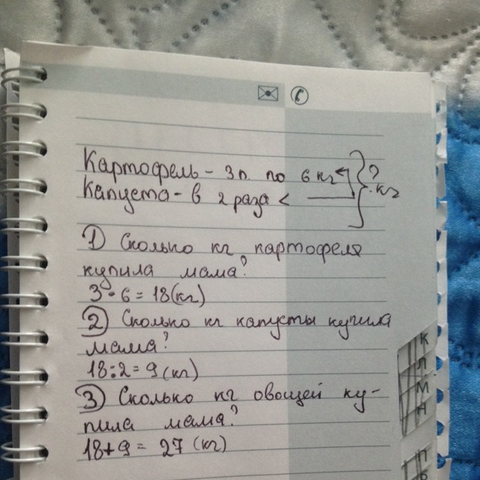 Картофель - 3п. по 6 кг ?
Капуста - в 2 раза < кг
1) Сколько кг картофеля
купила мама?
3·6=18(кг)
2) Сколько кг капусты купила
мама?
18:2=9(кг)
3) Сколько кг овощей ку-
пила мама?
18+9= 27 (кг)
К
Л
М
Н
П
Р